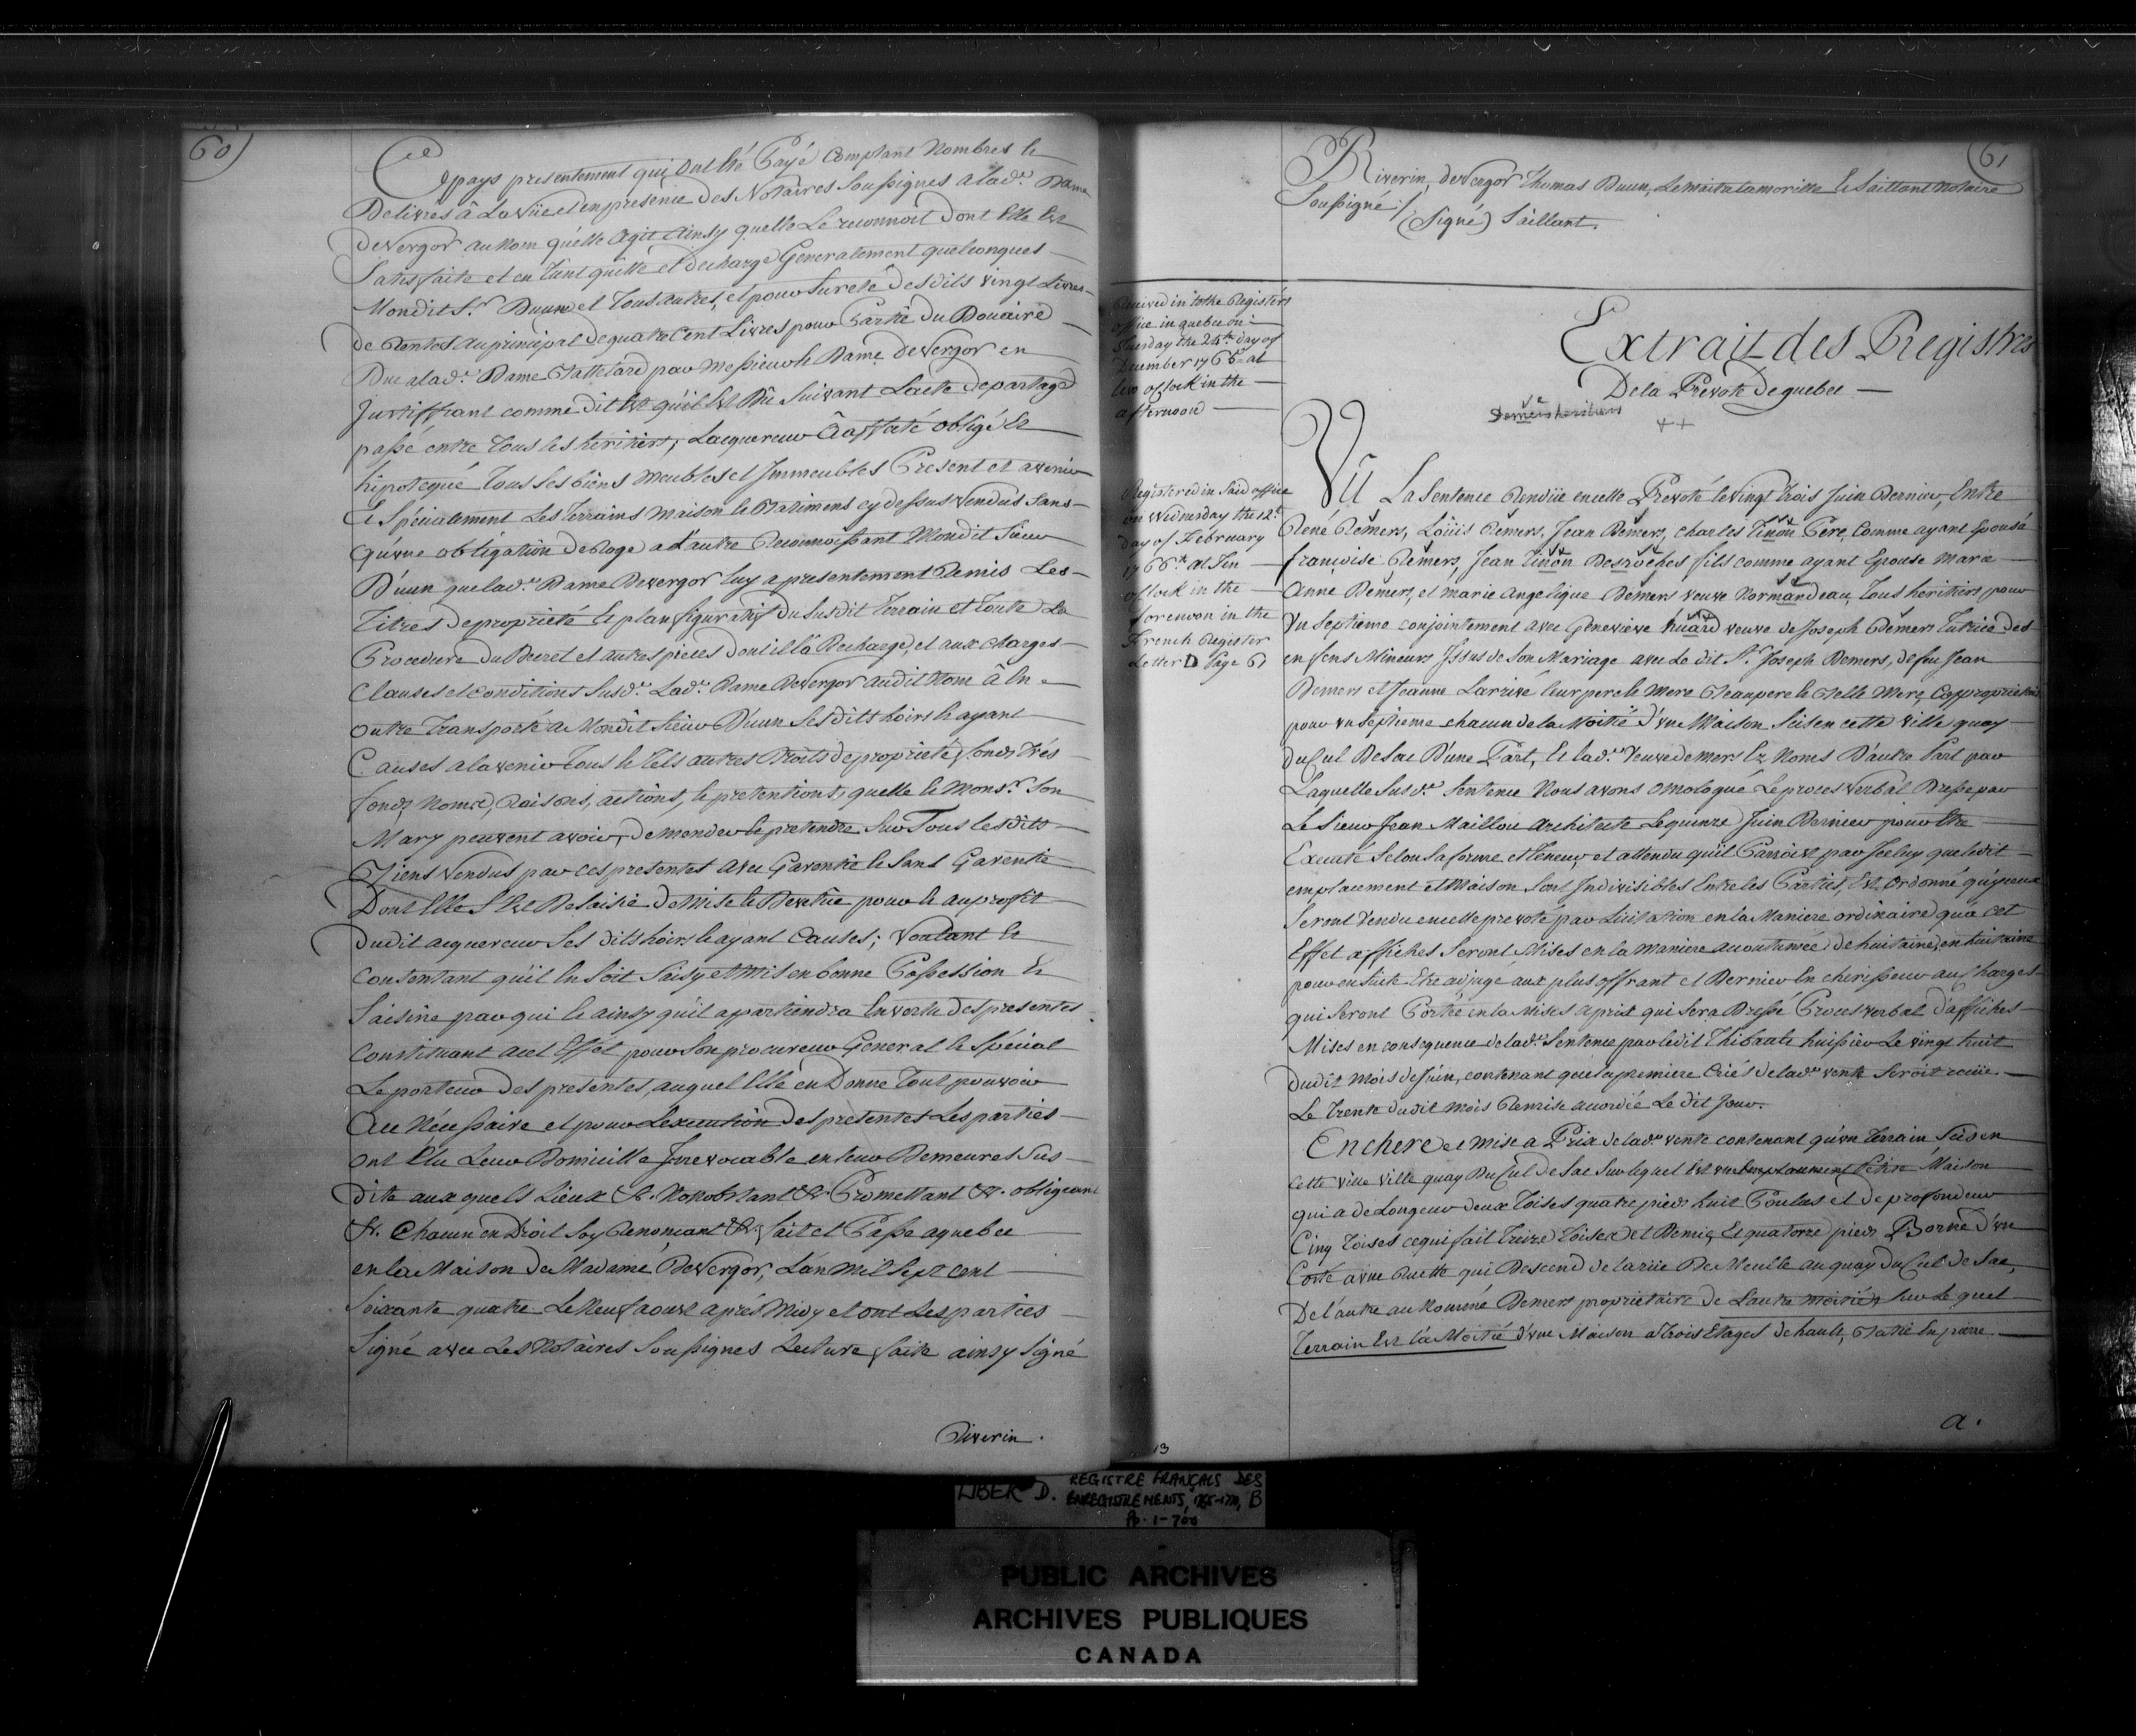 60
Ce pays presentement qui ont été Payé Comptant Nombrés le
Delivrés à La vüe et en presence des Notaires Soussignes a lad.e Dame
DeVergor au Nom qu'elle Agit Ainsy quelle Le reconnoit Dont Elle Est
Satisfaite et en Tient quitte et decharge Generalement quelconques
Mondit S.r Dunn et Tous autres, et pour Sureté Desdits Vingt Livres
de Rentes au principal de quatre Cent Livres pour Partie du Douaire
Due a lad.e Dame par Messieur le Dame deVergor en
Justiffiant comme dit Est qu'il Est Dû Suivant Lacte de partage
passé entre Tous les heritiers, Lacquereur A affecté obligé Et
hipotequé Tous Ses biens Meubles et Immeubles Present et avenir
Et Spécialement Les Terrains Maison le Batimens cy dessus Vendus Sans
Qu'une obligation Deroge a L'autre Reconnoissant Mondit Sieur
Dunn que lad.e Dame Devergor luy a presentement Remis Les
Titres de propriété le plan figuratif du Susdit Terrain et toute La
Procedure du Decret et autres pieces dont il la Decharge, et aux charges
Clauses et Conditions Susd.es Lad.e Dame Devergor audit Nom à En
outre Transporté a Mondit Sieur Dunn Sesdits hoirs le ayant
Causes a lavenir Tous le Tels autres Droits de propriété, fonds Trés
fonds Noms, Raisons, actions, le pretentions, quelle le Mons.r Son
Mary peuvent avoir, demander le pretendre Sur Tous lesdits
Biens Vendus par ces presentes avec Garentie le Sans Garentie
Dont Elle S'Est Desaisie Demise le Devetüe pour le au profit
Dudit acquereur Ses dits hoirs le ayant Causes; Voulant Et
Consentant qu'il En Soit Saisy et Mis en bonne Possession Et
Saisine par qui le ainsy qu'il apartiendra En vertu des presentes
Constituant acet Effet pour Son procureur General le Spécial
Le porteur des presentes, auquel Elle en Donne Tout pouvoir
Ace Nécessaire et pour Lexecution des presentes Les parties
ont Elu Leur Domicille Irrevocable en leur Demeures Sus
dite aux quels Lieux &c. Nonobstant &c. Promettant &c. obligeant
&c. Chacun en Droit Soy Renoncant &c. fait et Passe a quebec
en la Maison de Madame DeVergor, L'an Mil Sept cent
Soixante quatre Le Neuf aoust aprés Midy et ont Les parties
Signé avec Les Notaires Soussignes Lecture faite ainsy Signé
Riverin.
61
Riverin, deVergor Thomas Dunn, Lemaitre Lamorille Et Saillant Notaire
Soussigné ./.
(Signé) Saillant.
Received into the Register's
office in quebec on
Tuesday the 24.th day of
December 1765 at
two oClock in the
afternoon
Extrait des Registres
De la Prevoté De quebec
Demers heritiers
++
Registered in Said office
on Wednesday the 12.th
day of February
1766.th at Ten
oClock in the
forenoon in the
French Register
Letter D Page 61
Vû La Sentence Rendüe en cette Prevoté le Vingt Trois Juin Dernier, Entre
René Demers, Loüis Demers, Jean Demers, Charles Tinon Pere, Comme ayant Epousé
françoise Demers, Jean Tinon Desroches fils comme ayant Epousé Marie
Anne Demers, et Marie Angelique Demers veuve Normandeau, Tous heritiers pour
Un Septieme conjointement avec Genevieve huard veuve de Joseph Demers Tutrice des
enfens Mineurs Issus de Son Mariage avec Le dit S.r Joseph Demers, de feu Jean
Demers et Jeanne Larrivé leur pere le Mere Beaupere le Belle Mere, Coproprietaires
pour un Septieme chacun de la Moitié d'une Maison Sis en cette Ville quay
du Cul De Sac D'une Part, Et lad.e Veuve demers Ez Noms D'autre Part par
Laquelle Susd.e Sentence Nous avons omologué Le proces Verbal Dressé par
Le Sieur Jean Maillou Architecte Le quinze Juin Dernier pour Etre
Executé Selon Sa forme et Teneur, et attendu qu'il Paroist par Iceluy que ledit
emplacement et Maison Sont Indivisibles Entre les Parties, Est ordonné qu'yceux
Seront Vendu en cette prevoté par Licitation en la Maniere ordinaire qu'a cet
Effet affiches Seront Mises en la Maniere accoutumée de huitaine, en huitaine
pour ensuite Etre adjugé aux plus offrant et Dernier En cherisseur aux Charges
qui Seront Portée en la Mises a prix qui Sera Dressé Proces Verbal d'affiches
Mises en consequence de lad.e Sentence par ledit Thibault huissier Le vingt huit
Dudit Mois de Juin, contenant que la premiere Criés de lad.e vente Seroit
Le Trente dudit Mois Remise accordée Le dit Jour.
Enchere et Mise a Prix de lad.e vente contenant qu'un Terrain Sis en
Cette Ville Ville quay Du Cul de Sac Sur lequel Est Maison
qui a de Longeur deux Toises quatre pieds huit Poulces et De profondeur
Cinq Toises ce qui fait Treize Toises et Demie Et quatorze pieds Borné D'un
Costé a une Ruette qui Descend de la rüe De Meulle au quay du Cul de Sac,
De l'autre au Nommé Demers proprietaire de L'autre Moitié, Sur Le quel
Terrain Est la Moitié d'une Maison a Trois Etages de haute, Batie En pierre
a.
13
LIBER D. REGISTRE FRANÇAIS DES
ENREGISTREMENTS, 1765-1770, B
Pp. 1-700
PUBLIC ARCHIVES
ARCHIVES PUBLIQUES
CANADA